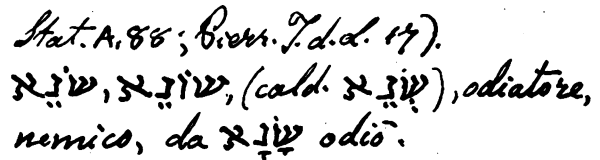 Stat. A. 88; Pierr. T. d. d. 17).
שֹׂנֵא, שׂוֹנֵא, (cald. שָׂנֵא), odiatore,
nemico, da שָׂנָא odiò.